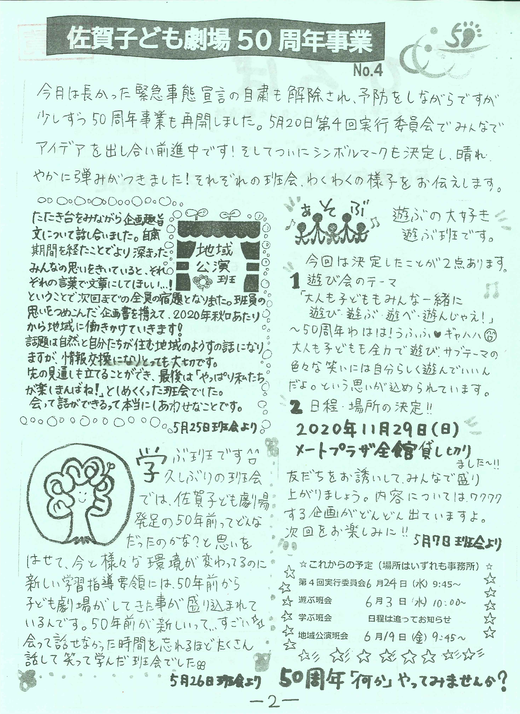 佐賀子ども劇場50周年事業
No.4
50
今月は長かった緊急事態宣言の自粛も解除され、予防をしながらですが
少しずつ50周年事業も再開しました。5月20日第4回実行委員会でみんなで
アイデアを出し合い前進中です！そしてついにシンボルマークも決定し、晴れ
やかに弾みがつきました！それぞれの班会、わくわくの様子をお伝えします。
地域
公演
班
たたき台をみながら企画趣旨
文について話し合いました。自粛
期間を経たことでより深まった
みんなの思いをきいていると、それ
ぞれの言葉で文章にしてほしい…！
ということで次回までの全員の宿題となりました。班員の
思いをつめこんだ企画書を携えて、2020年秋口あたり
から地域に働きかけていきます！
話題は自然と自分たちが住む地域のようすの話になり
ますが、情報交換になりとっても大切です。
先の見通しも立てることができ、最後は「やっぱり私たち
が楽しまんばね！」としめくくった班会でした。
会って話ができるって本当にしあわせなことです。
5月25日班会より
あそぶ
遊ぶの大好き
遊ぶ班です。
今回は決定したことが2点あります。
1 遊び会のテーマ
「大人も子どももみんな一緒に
遊び・遊ぶ・遊べ・遊んじゃえ！」
～50周年わはは！うふふ♥ギャハハ
大人も子どもも全力で遊び、サブテーマの
色々な笑いには自分らしく遊んでいいん
だよ。という思いが込められています。
2 日程・場所の決定!!
2020年11月29日(日)
メートプラザ全館貸し切り
ました～!!
友だちをお誘いして、みんなで盛り
上がりましょう。内容についてはワクワク
する企画がどんどん出ていますよ。
次回をお楽しみに!!
5月7日班会より
まなぶ
学ぶ班です
久しぶりの班会
では、佐賀子ども劇場
発足の50年前ってどんな
だったのかな？と思いを
はせて、今と様々な環境が変わってるのに
新しい学習指導要領には、50年前から
子ども劇場がしてきた事が盛り込まれて
いるんです。50年前が新しいって、すごい
会って話せなかった時間を忘れるほどたくさん
話して笑って学んだ班会でした
5月26日班会より
☆これからの予定(場所はいずれも事務所)☆
第4回実行委員会 6月24日(水) 9:45~
遊ぶ班会 6月3日(水) 10:00~
学ぶ班会 日程は追ってお知らせ
地域公演班会 6月19日(金) 9:45~
50周年「何か」やってみませんか？
－2－